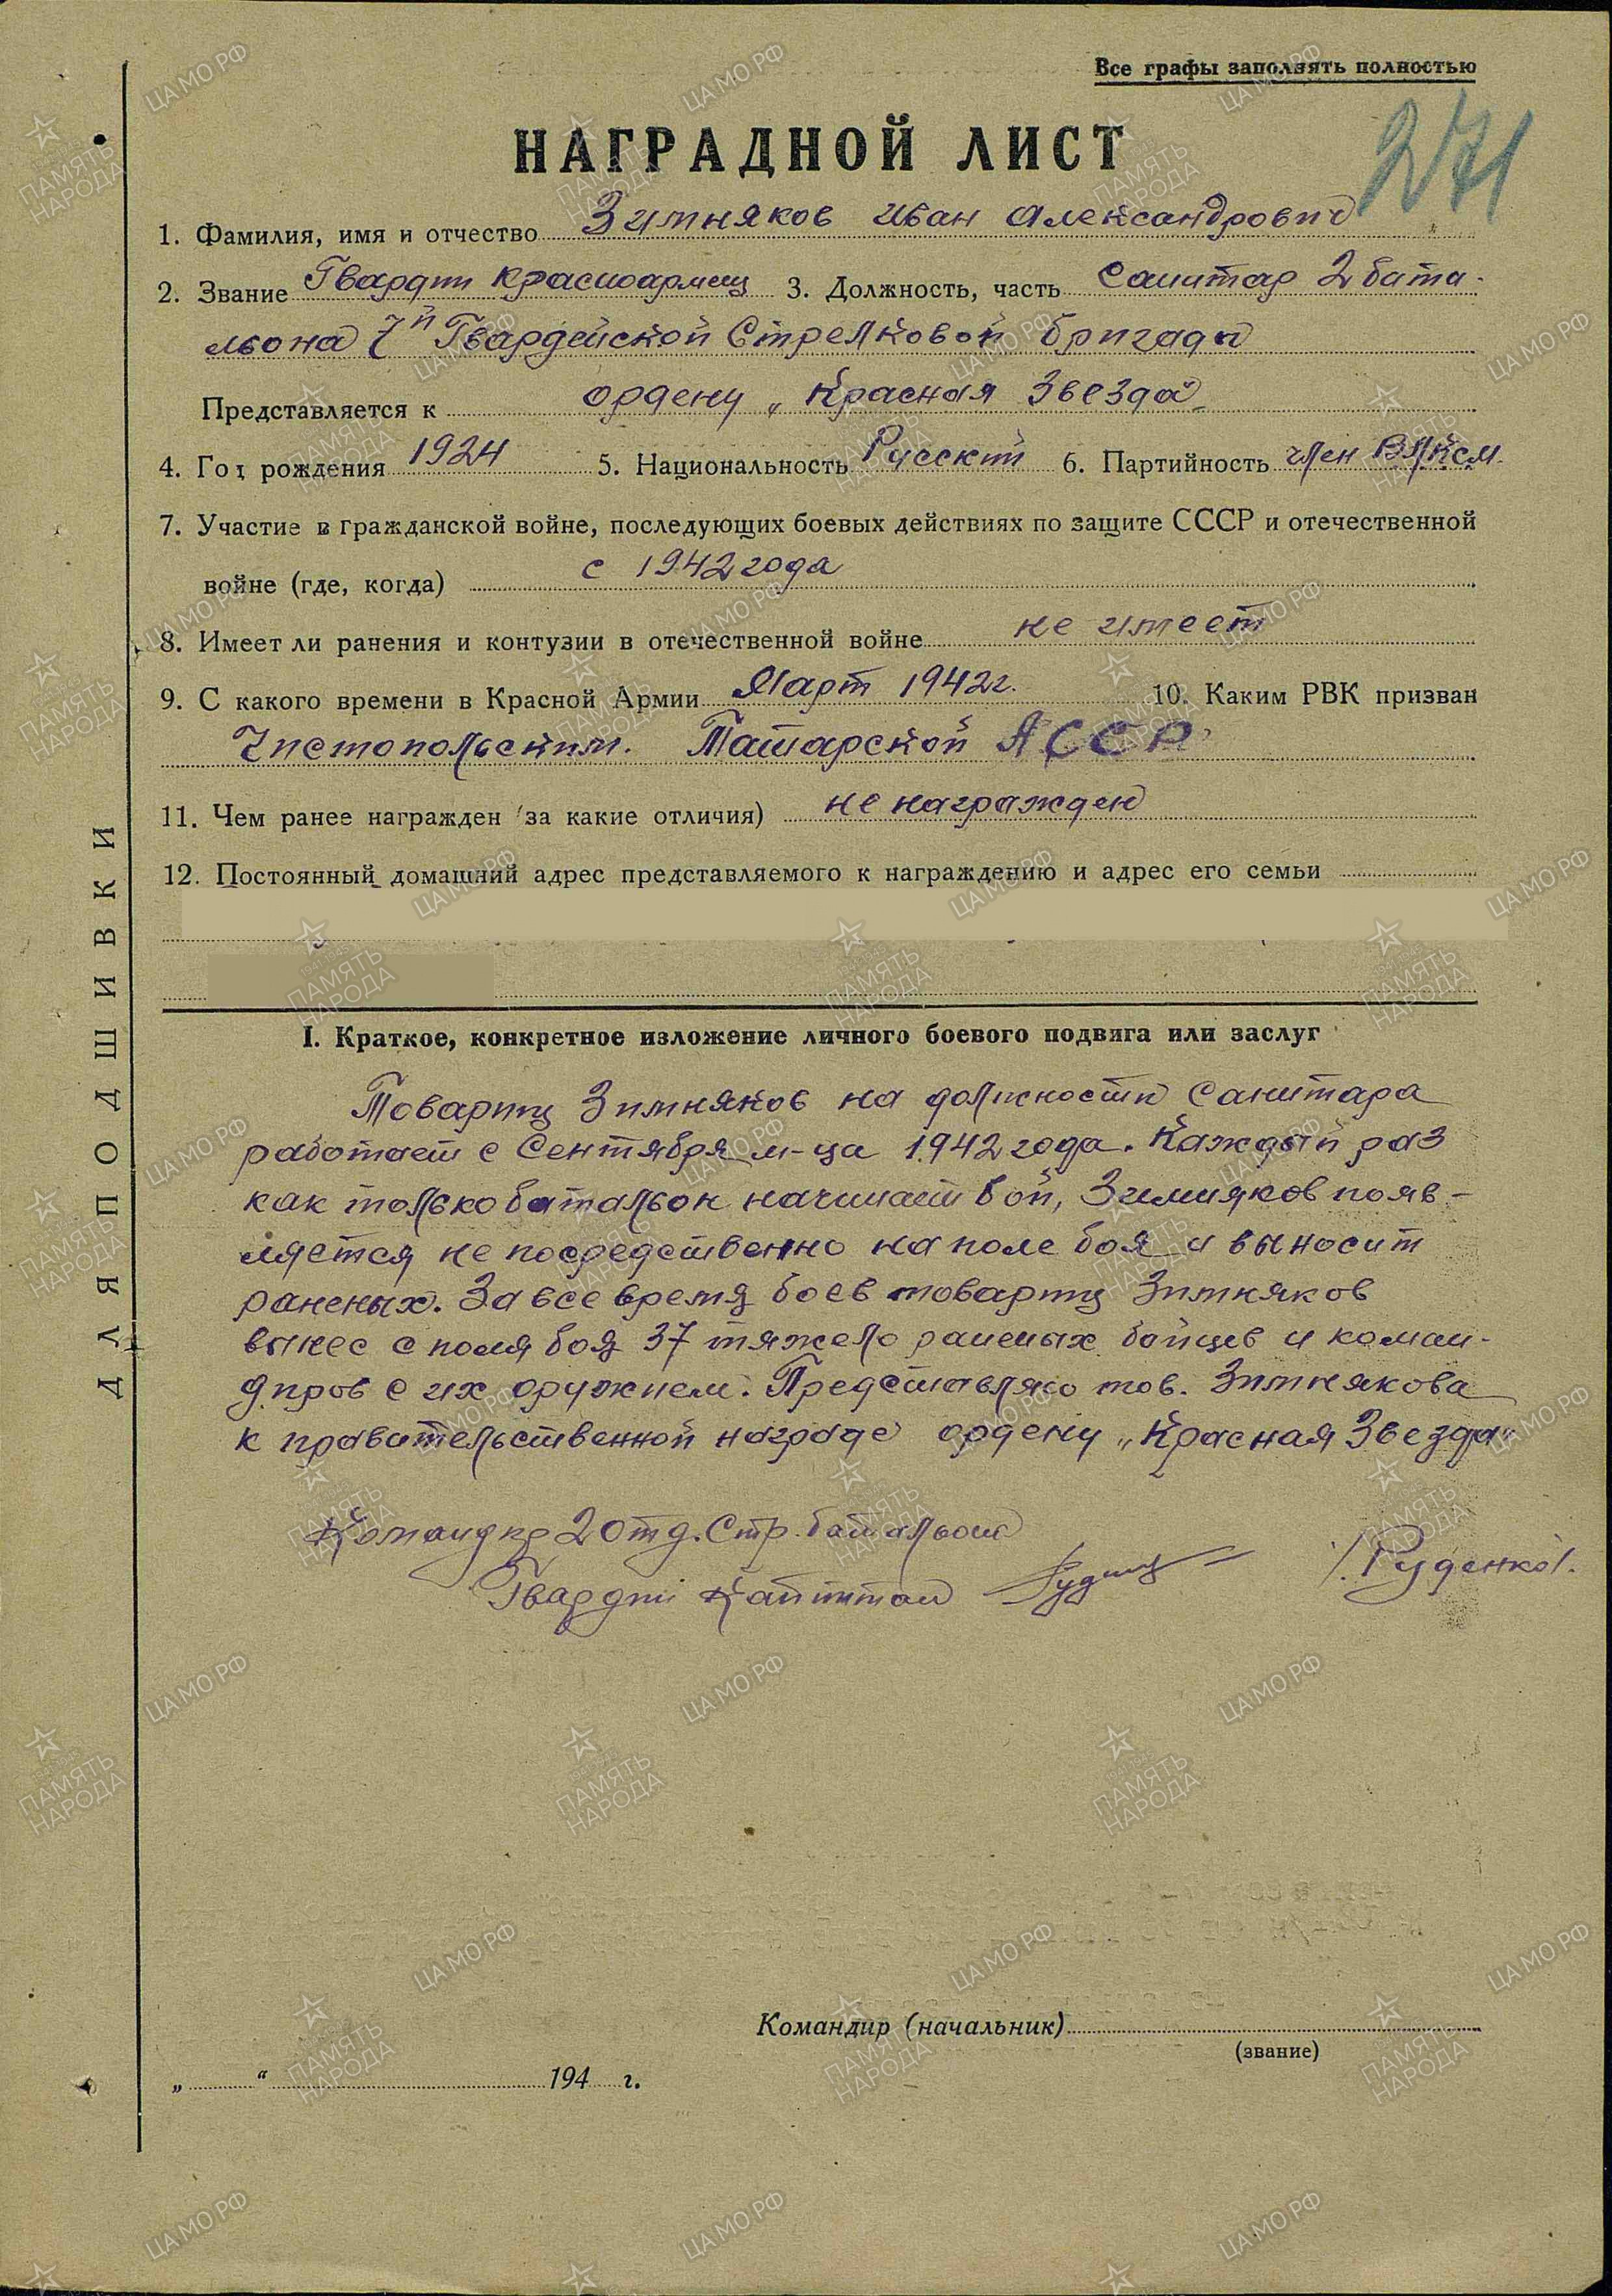 Все графы заполнять полностью
271
НАГРАДНОЙ ЛИСТ
1. Фамилия, имя и отчество Зимняков Иван Александрович
2. Звание Гвардии Красноармеец 3. Должность, часть Санитар 2 бата-
льона 7й Гвардейской Стрелковой бригады
Представляется к ордену „Красная Звезда"
4. Год рождения 1924 5. Национальность Русский 6. Партийность член ВЛКСМ
7. Участие в гражданской войне, последующих боевых действиях по защите СССР и отечественной
войне (где, когда) с 1942 года
8. Имеет ли ранения и контузии в отечественной войне не имеет
9. С какого времени в Красной Армии Март 1942г. 10. Каким РВК призван
Чистопольским. Татарской АССР
11. Чем ранее награжден (за какие отличия) не награжден
12. Постоянный домашний адрес представляемого к награждению и адрес его семьи
I. Краткое, конкретное изложение личного боевого подвига или заслуг
Товарищ Зимняков на должности Санитара
работает с Сентября м-ца 1942 года. Каждый раз
как только батальон начинает бой, Зимняков появ-
ляется не посредственно на поле боя и выносит
раненых. За все время боев товарищ Зимняков
вынес с поля боя 37 тяжело раненых бойцов и коман-
диров с их оружием. Представляю тов. Зимнякова
к правительственной награде ордену „Красная Звезда"
Командир 2 отд. Стр. батальона
Гвардии Капитан /Руденко/.
Командир (начальник)
(звание)
„ “ 194 г.
ДЛЯ ПОДШИВКИ
ЦАМО РФ
ПАМЯТЬ НАРОДА